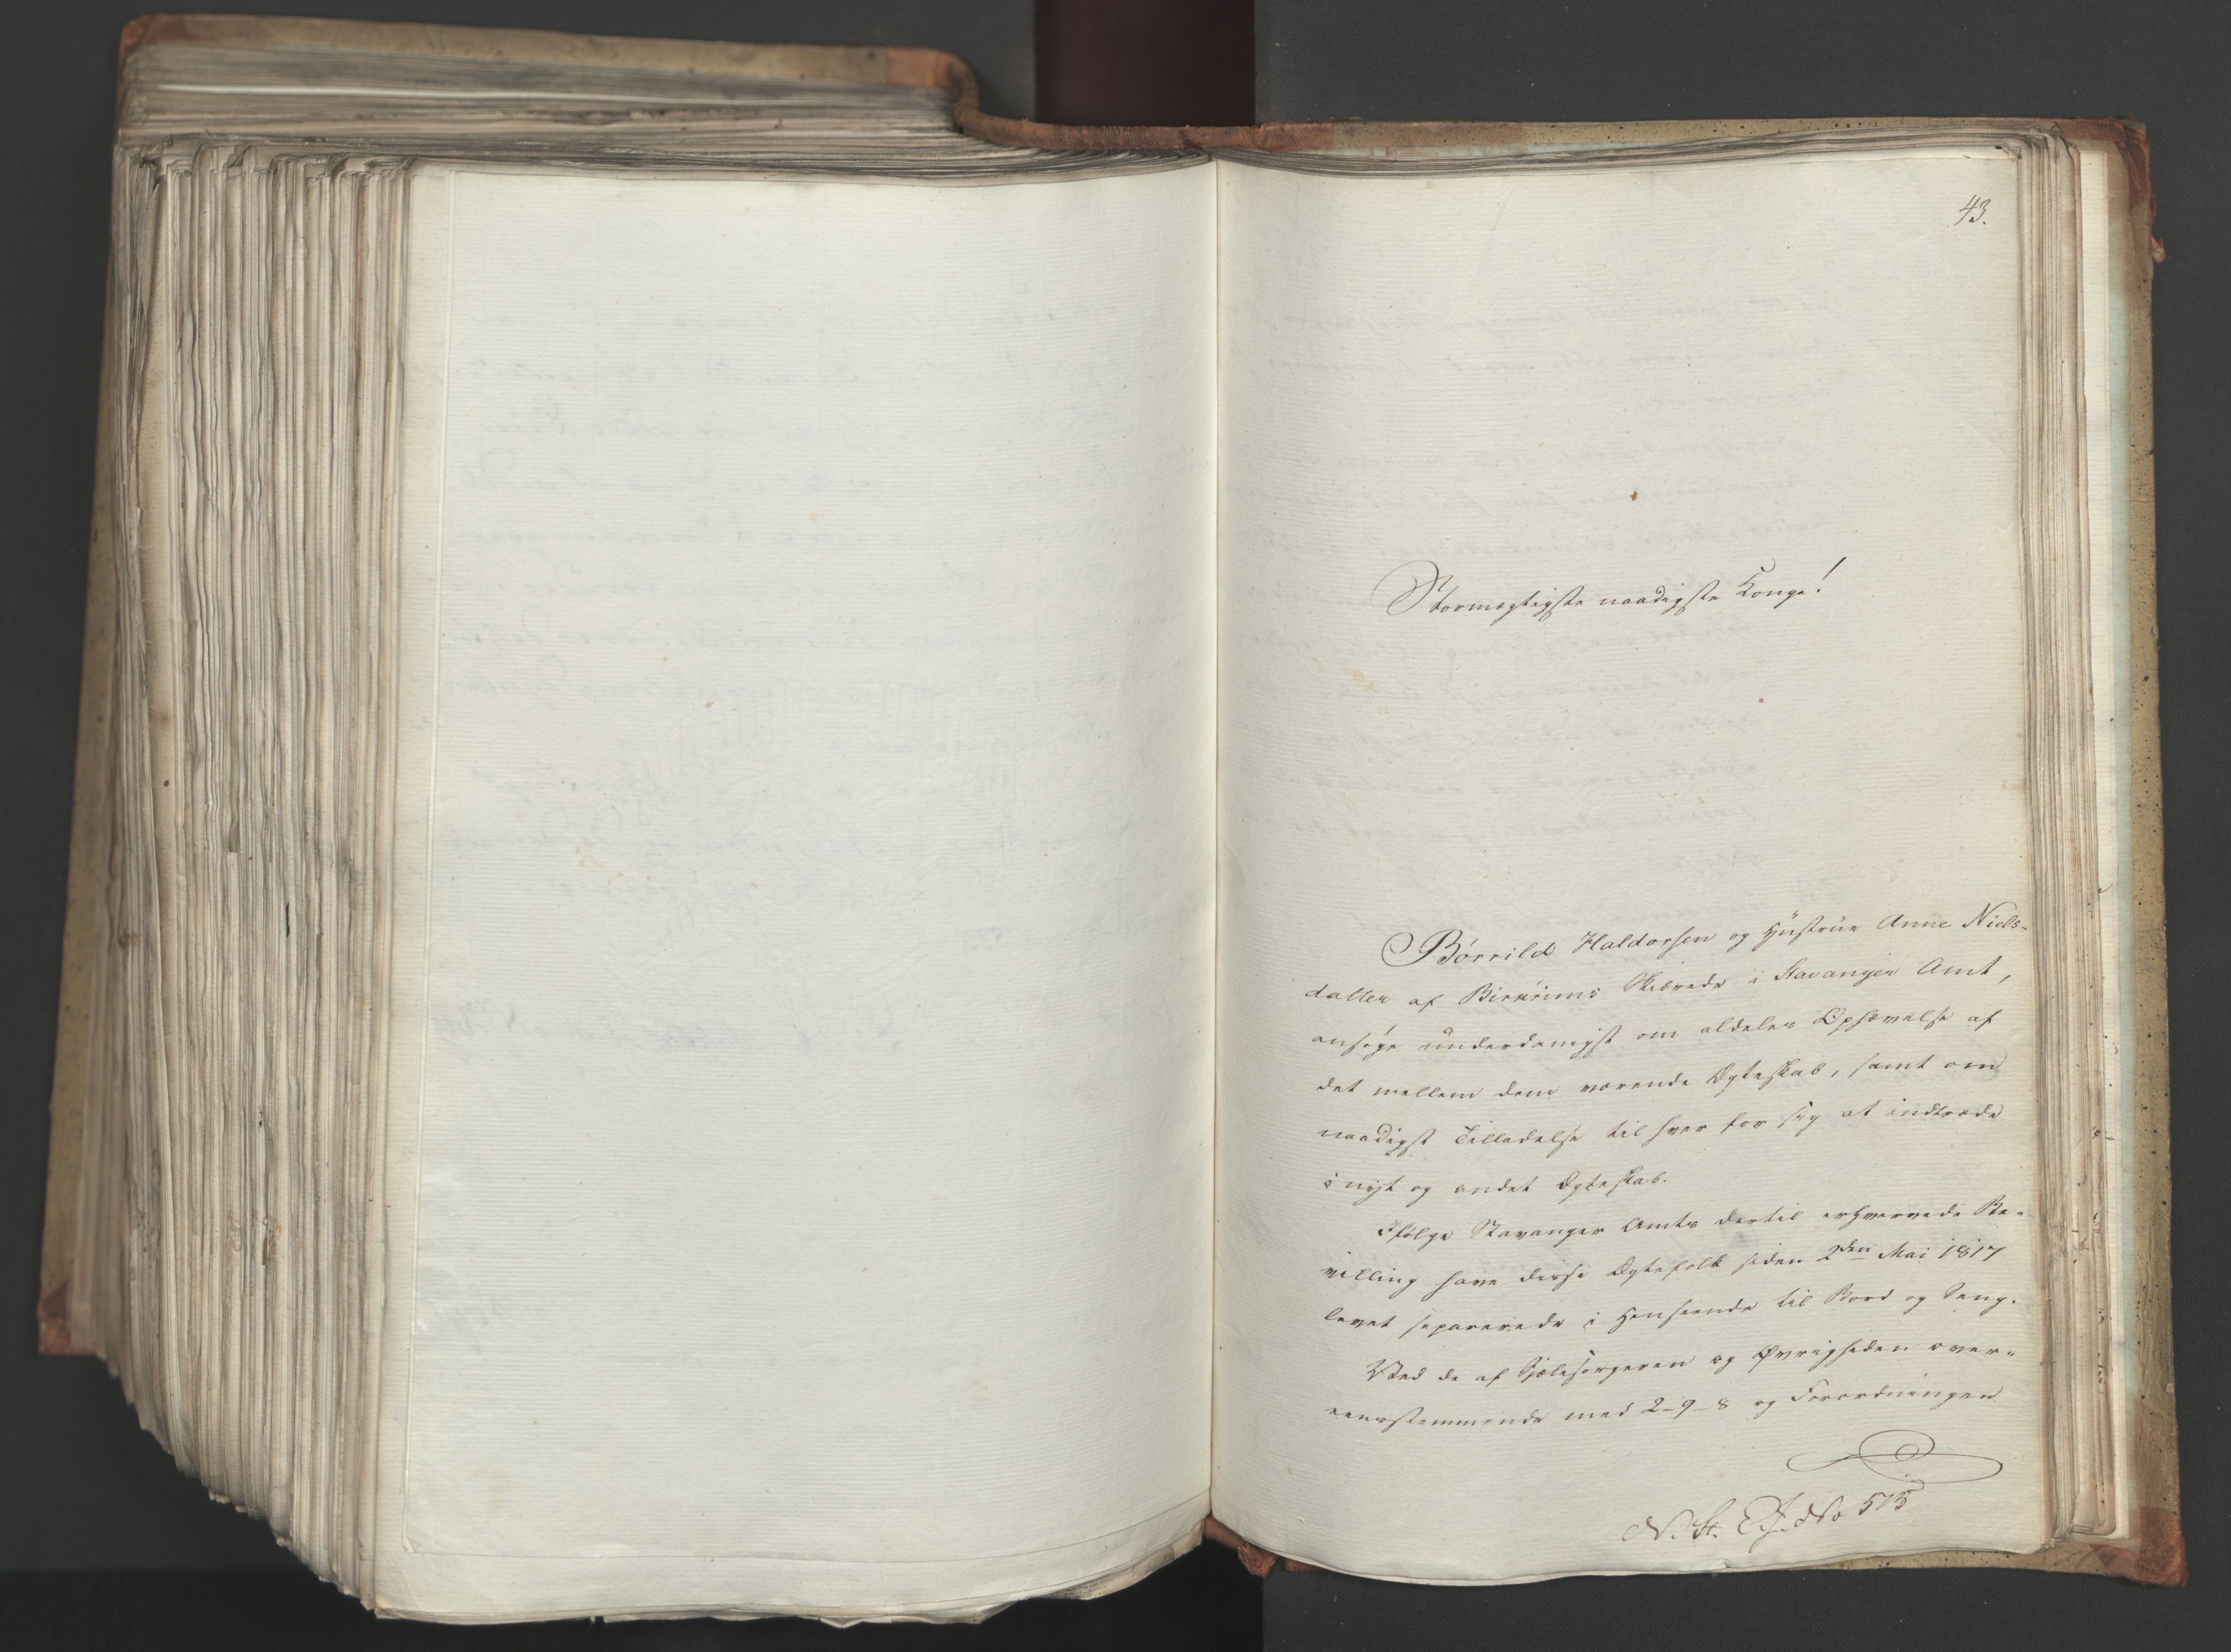 43.
Stormægtigste naadigste Konge!
Børrild Haldorsen og Hustrue Anne Niels-
datter af Birkrims Skibrede i Stavanger Amt,
ansøge underdanigst om aldeles Ophævelse af
det mellem dem værende Ægteskab, samt om
naadigst Tilladelse til hver for sig at indtræde
i nyt og andet Ægteskab.
Ifølge Stavanger Amts dertil erhvervede Be-
villing have disse Ægtefolk siden 2den Mai 1817
levet separerede i Henseende til Bord og Seng.
Ved de af Sjælesørgeren og Øvrigheden over-
eensstemmende med 2-9-8 og Forordningen
N. St. E. J. No 515